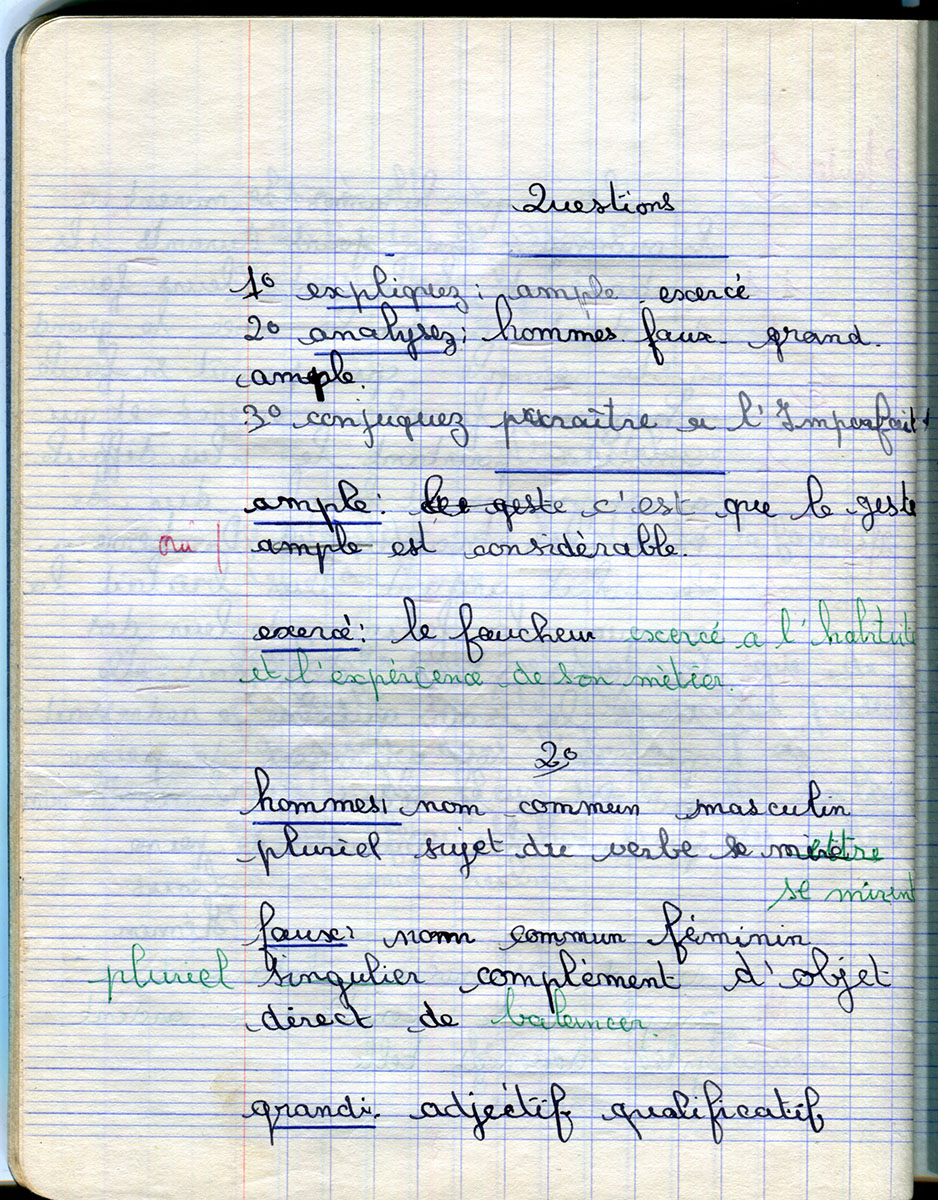 Questions
1° expliquez: ample exercé
2° analysez: hommes. faux. grand.
ample.
3° conjuguez paraître a l'Imparfait
ample: geste c'est que le geste
oui ample est considérable.
exercé: le faucheur excercé a l'habitude
et l'expérience de son métier.
2°
hommes: nom commun masculin
pluriel sujet du verbe se mettre
se mirent
faux: nom commun féminin
pluriel singulier complément d'objet
direct de balancer.
grand: adjectif qualificatif